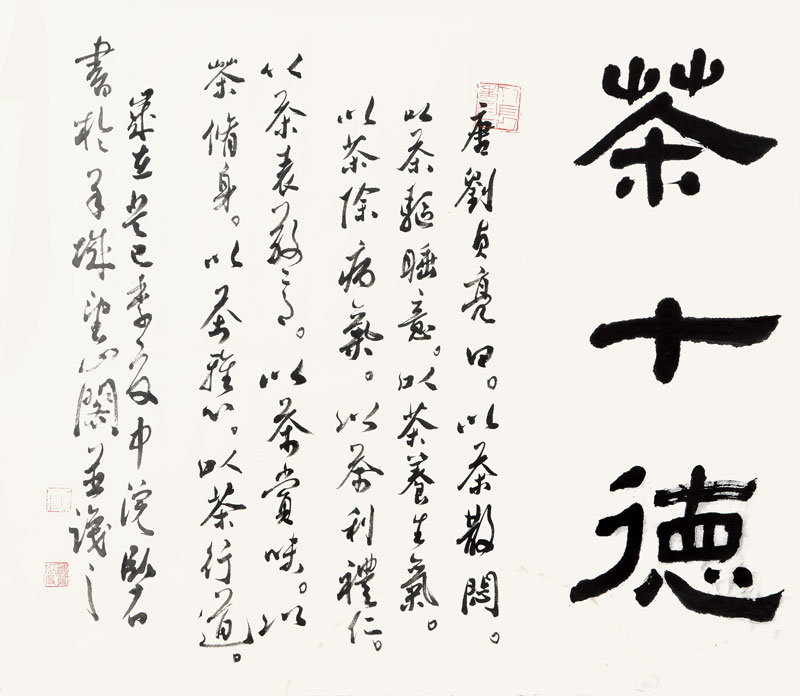 茶十徳
唐劉貞亮曰。以茶散悶。
以茶驅睡意。以茶養生氣。
以茶除病氣。以茶利禮仁。
以茶表敬意。以茶賞味。以
茶脩身。以茶雅心。以茶行道。
歲在癸巳季夏中浣臥石
書於羊城望山閣並識之